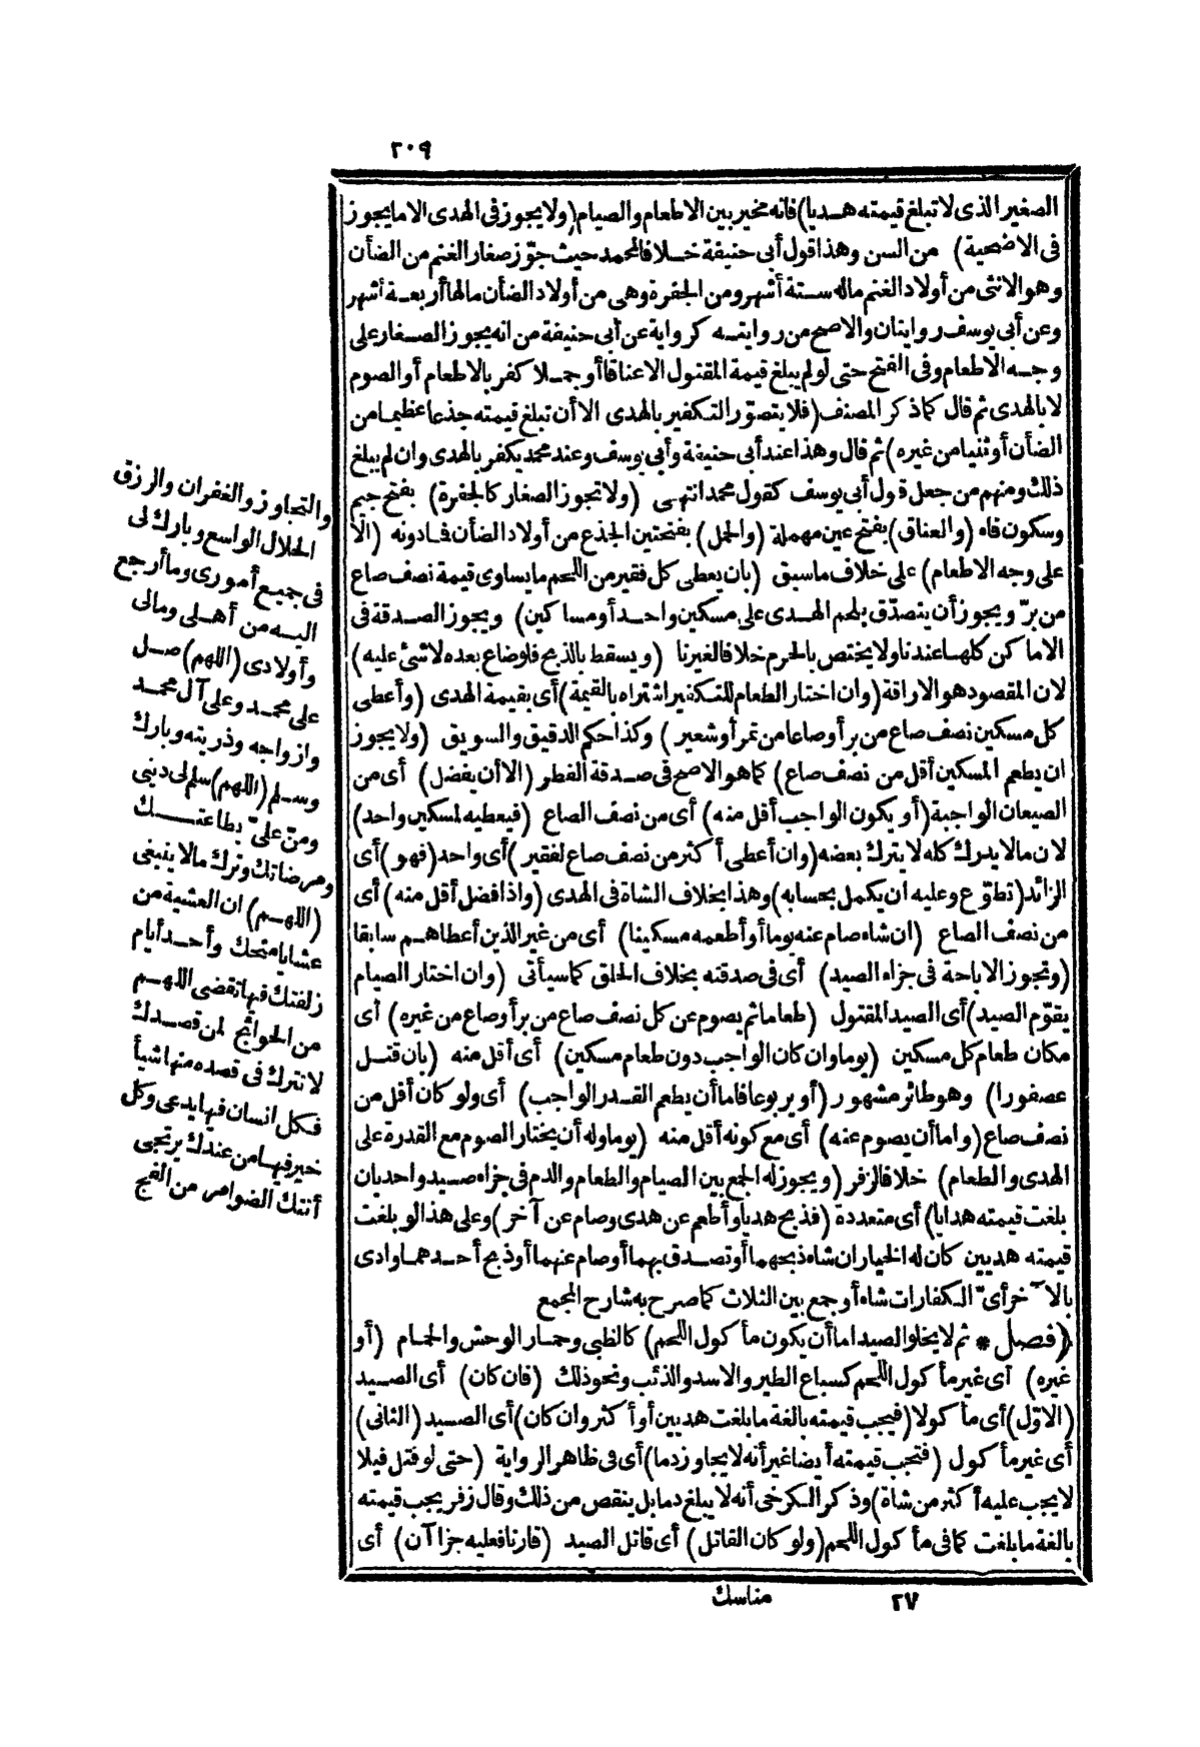 ٢٠٩
الصغير الذى لا تبلغ قيمته هديا) فانه مخير بين الاطعام والصيام (ولا يجوز فى الهدى الا ما يجوز
فى الاضحية) من السن وهذا قول أبى حنيفة خلافا لمحمد حيث جوّز صغار الغنم من الضأن
وهو الانثى من أولاد الغنم ماله ستة أشهر ومن الجفرة وهى من أولاد الضأن مالها أربعة أشهر
وعن أبى يوسف روايتان والاصح من روايته كرواية عن أبى حنيفة من انه يجوز الصغار على
وجه الاطعام وفى الفتح حتى لو لم يبلغ قيمة المقتول الا عناقا أو جملا كفر بالاطعام أو الصوم
لا بالهدى ثم قال كما ذكر المصنف (فلا يتصوّر التكفير بالهدى الا أن تبلغ قيمته جذعا عظيما من
الضأن أو ثنيا من غيره) ثم قال وهذا عند أبى حنيفة وأبى يوسف وعند محمد يكفر بالهدى وان لم يبلغ
ذلك ومنهم من جعل قول أبى يوسف كقول محمد انتهى (ولا تجوز الصغار كالجفرة) بفتح جيم
وسكون فاه (والعناق) بفتح عين مهملة (والجمل) بفتحتين الجذع من أولاد الضأن فما دونه (الا
على وجه الاطعام) على خلاف ما سبق (بان يعطى كل فقير من اللحم ما يساوى قيمة نصف صاع
من برّ ويجوز أن يتصدّق بلحم الهدى على مسكين واحد أو مساكين) ويجوز الصدقة فى
الاماكن كلها عندنا ولا يختص بالحرم خلافا لغيرنا (ويسقط بالذبح فلو ضاع بعده لا شئ عليه)
لان المقصود هو الاراقة (وان اختار الطعام للتكفير اشتراه بالقيمة) أى بقيمة الهدى (وأعطى
كل مسكين نصف صاع من بر أو صاعا من تمر أو شعير) وكذا حكم الدقيق والسويق (ولا يجوز
ان يطعم المسكين أقل من نصف صاع) كما هو الاصح فى صدقة الفطر (الا أن يفضل) أى من
الصيعان الواجبة (أو يكون الواجب أقل منه) أى من نصف الصاع (فيعطيه لمسكين واحد)
لان ما لا يدرك كله لا يترك بعضه (وان أعطى أكثر من نصف صاع لفقير) أى واحد (فهو) أى
الزائد (تطوّع وعليه ان يكمل بحسابه) وهذا بخلاف الشاة فى الهدى (واذا فضل أقل منه) أى
من نصف الصاع (ان شاء صام عنه يوما أو أطعمه مسكينا) أى من غير الذين أعطاهم سابقا
(وتجوز الاباحة فى جزاء الصيد) أى فى صدقته بخلاف الحلق كما سيأتى (وان اختار الصيام
يقوّم الصيد) أى الصيد المقتول (طعاما ثم يصوم عن كل نصف صاع من بر أو صاع من غيره) أى
مكان طعام كل مسكين (يوما وان كان الواجب دون طعام مسكين) أى أقل منه (بان قتل
عصفورا) وهو طائر مشهور (أو يربوعا فاما أن يطعم القدر الواجب) أى ولو كان أقل من
نصف صاع (واما أن يصوم عنه) أى مع كونه أقل منه (يوما وله أن يختار الصوم مع القدرة على
الهدى والطعام) خلافا لزفر (ويجوز له الجمع بين الصيام والطعام والدم فى جزاء صيد واحد بان
بلغت قيمته هدايا) أى متعددة (فذبح هديا وأطعم عن هدى وصام عن آخر) وعلى هذا لو بلغت
قيمته هديين كان له الخيار ان شاء ذبحهما أو تصدق بهما أو صام عنهما أو ذبح أحدهما وادى
بالآخر أىّ الكفارات شاء أو جمع بين الثلاث كما صرح به شارح المجمع
(فصل * ثم لا يخلو الصيد اما أن يكون مأكول اللحم) كالظبى وحمار الوحش والحمام (أو
غيره) أى غير مأكول اللحم كسباع الطير والاسد والذئب ونحو ذلك (فان كان) أى الصيد
(الاوّل) أى مأكولا (فيجب قيمته بالغة ما بلغت هديين أو أكثر وان كان) أى الصيد (الثانى)
أى غير مأكول (فتجب قيمته أيضا غير أنه لا يجاوز دما) أى فى ظاهر الرواية (حتى لو قتل فيلا
لا يجب عليه أكثر من شاة) وذكر الكرخى أنه لا يبلغ دما بل ينقص من ذلك وقال زفر يجب قيمته
بالغة ما بلغت كما فى مأكول اللحم (ولو كان القاتل) أى قاتل الصيد (قارنا فعليه جزاآن) أى
والتجاوز والغفران والرزق
الحلال الواسع وبارك لى
فى جميع أمورى وما أرجع
اليه من أهلى ومالى
وأولادى (اللهم) صل
على محمد وعلى آل محمد
وازواجه وذريته وبارك
وسلم (اللهم) سلم لى دينى
ومنّ علىّ بطاعتك
ومرضاتك وترك ما لا ينبغى
(اللهم) ان العشية من
عشايا منحك وأحد أيام
زلفتك فيها تقضى اللهم
من الحوائج لمن قصدك
لا تترك فى قصده منها شيأ
فكل انسان فيها يدعى وكل
خير فيها من عندك يرتجى
أتتك الضوامر من الفج
٢٧ مناسك